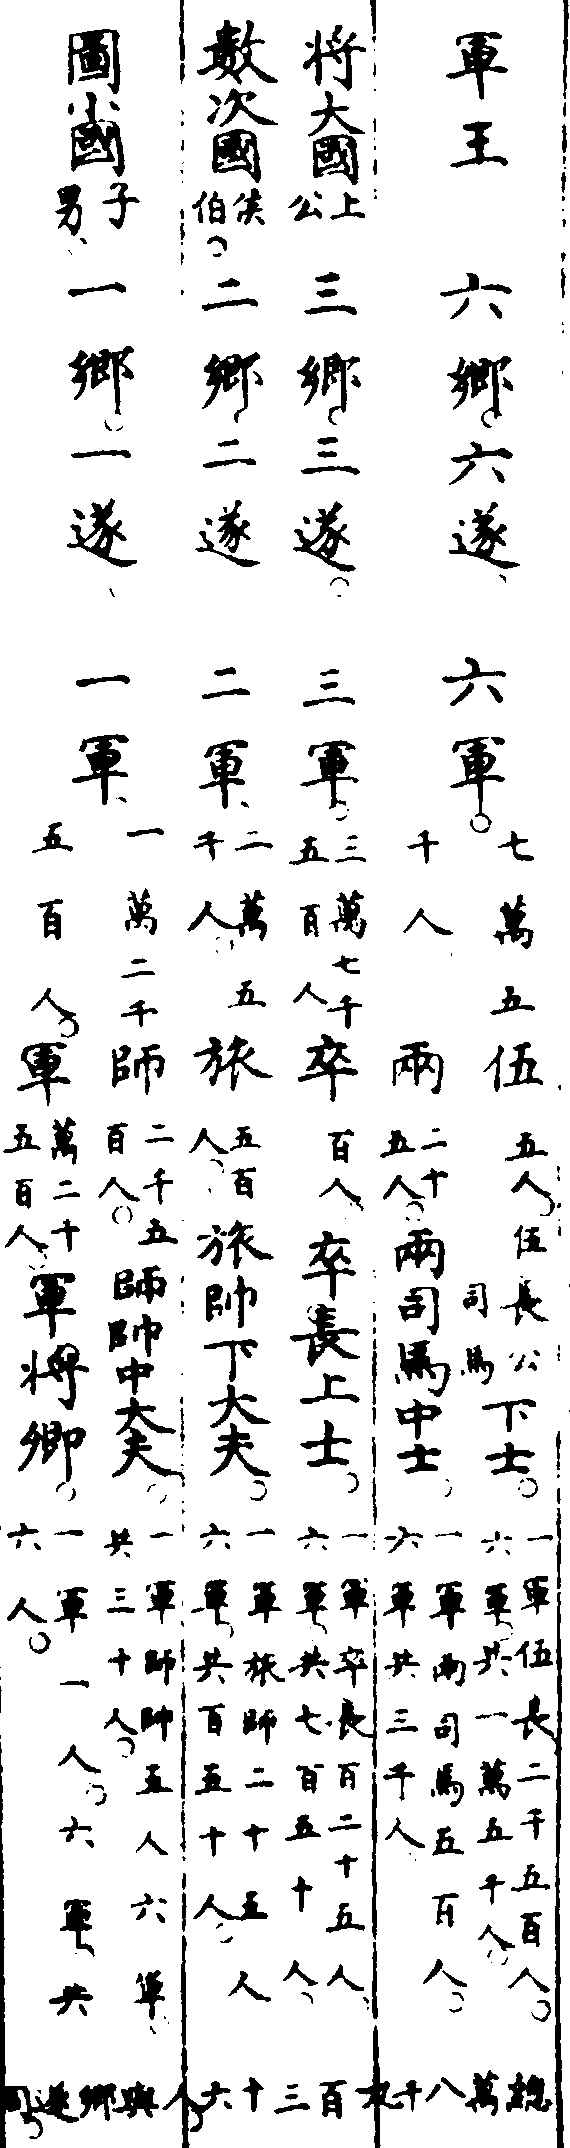 軍將數圖
王六鄉六遂六軍七萬五千人
大國上公三鄉三遂三軍三萬七千五百人
次國侯伯二鄉二遂二軍二萬五千人
小國子男一鄉一遂一軍一萬二千五百人
伍五人伍長公司馬下士
兩二十五人兩司馬中士
卒百人卒長上士
旅五百人旅帥下大夫
師二千五百人師帥中大夫
軍萬二千五百人軍將卿
一軍伍長二千五百人六軍共一萬五千人
一軍兩司馬五百人六軍共三千人
一軍卒長百二十五人六軍共七百五十人
一軍旅師二十五人六軍共百五十人
一軍師帥五人六軍共三十人
一軍一人六軍共六人
總萬八千九百三十六人與鄉遂同